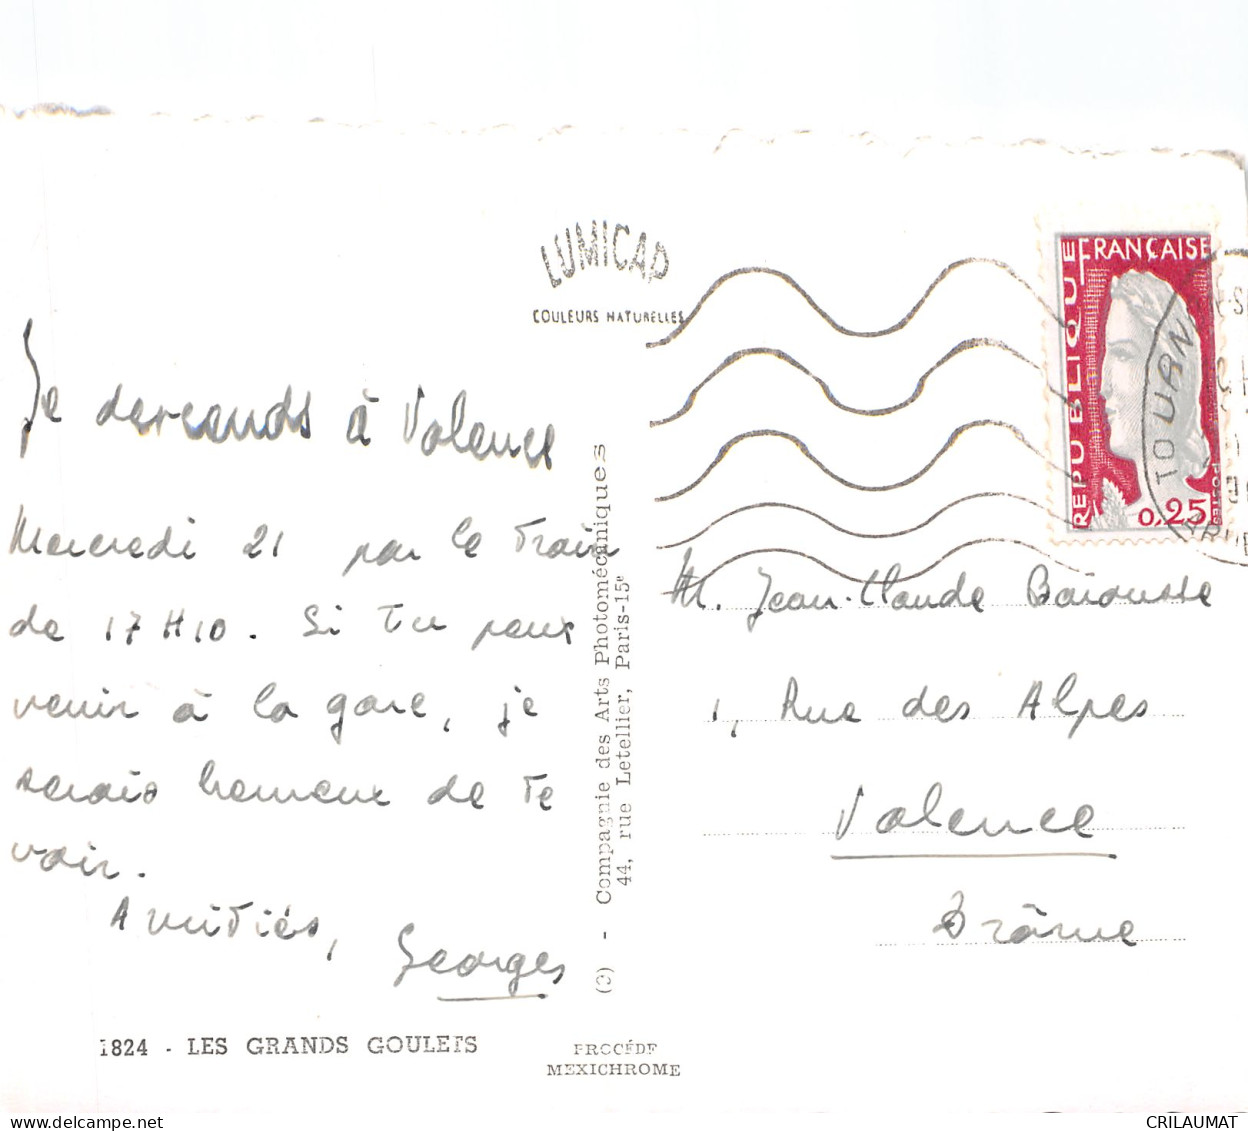 LUMICAP
COULEURS NATURELLES
RÉPUBLIQUE FRANÇAISE
POSTES
0,25
TOURN
Je descends à Valence
Mercredi 21 par le Train
de 17H10. Si Tu peux
venir à la gare, je
serais heureux de Te
voir.
Amitiés,
Georges
1824 - LES GRANDS GOULETS
PROCÉDÉ
MEXICHROME
(3) - Compagnie des Arts Photomécaniques
44, rue Letellier, Paris-15e
M. Jean-Claude
1, Rue des Alpes
Valence
Drôme
delcampe.net
CRILAUMAT